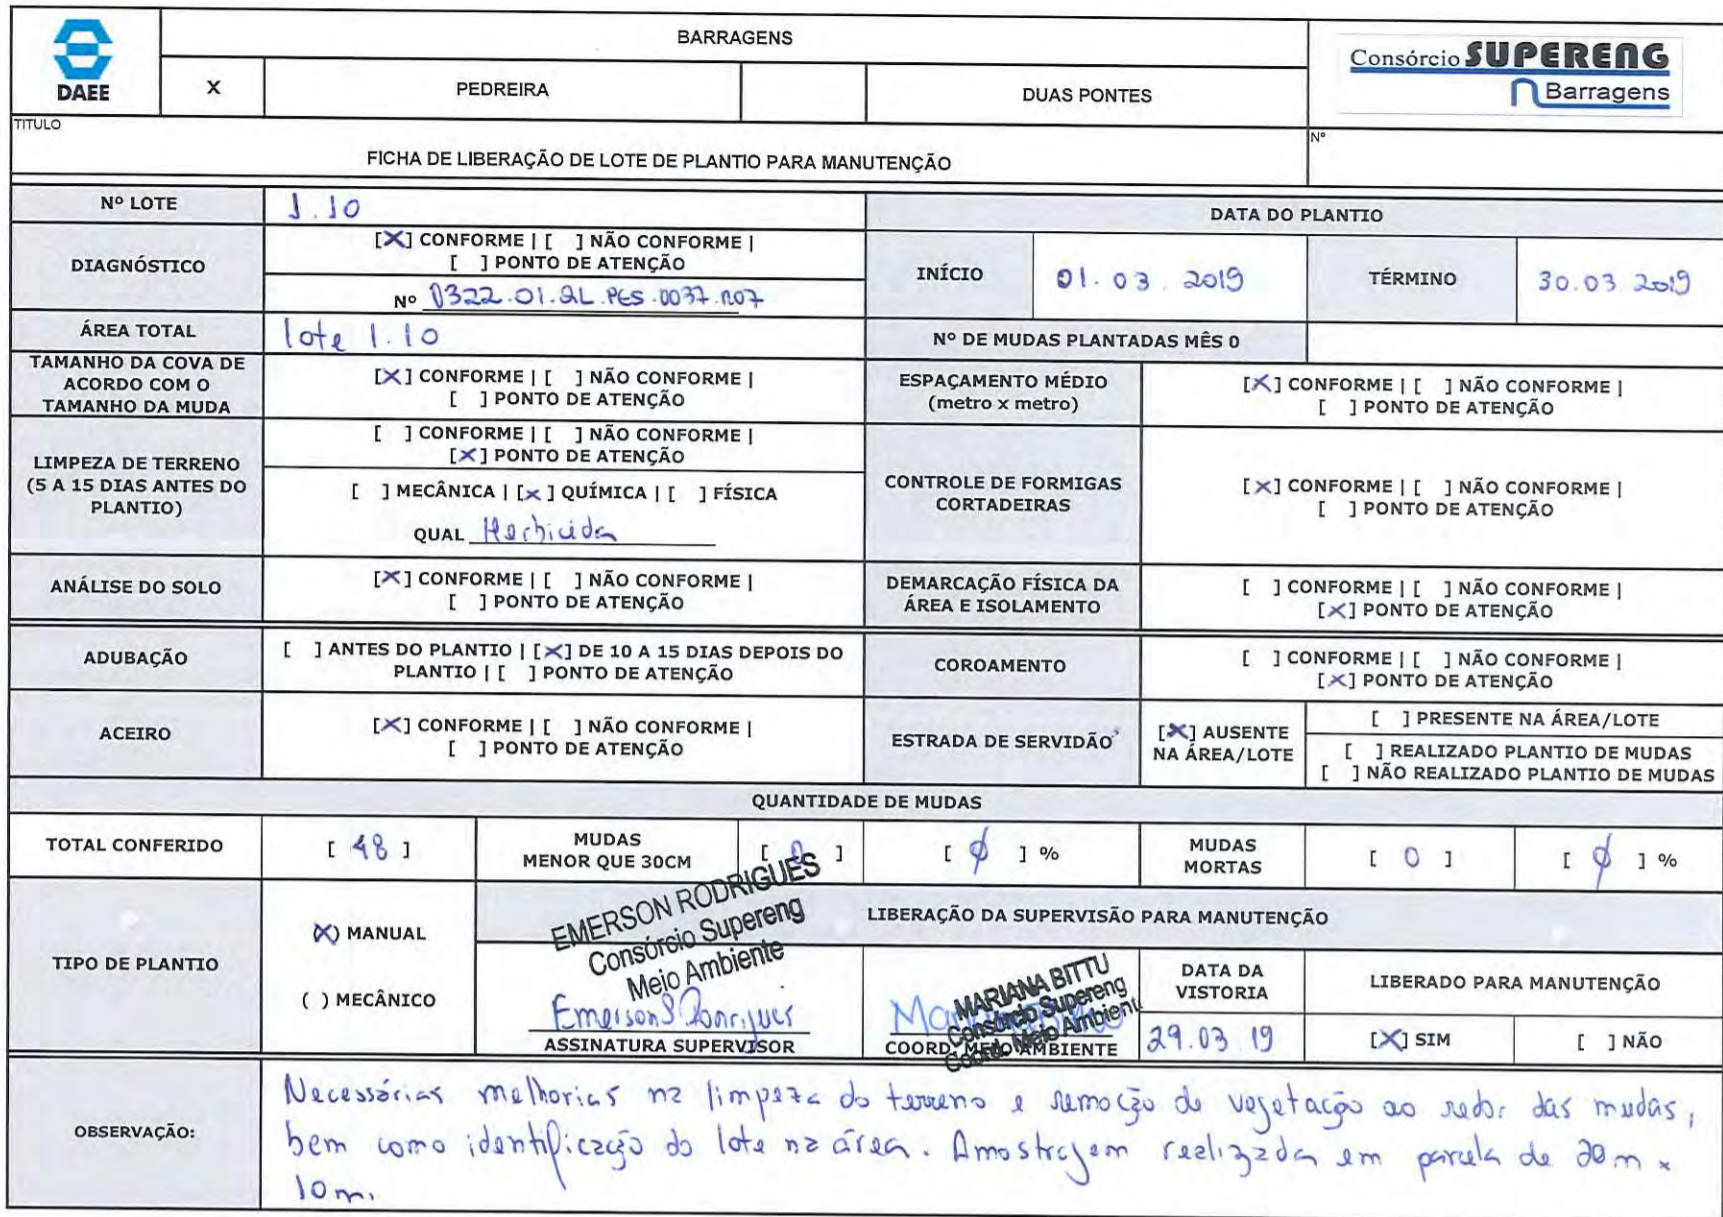 DAEE
BARRAGENS
X PEDREIRA DUAS PONTES
Consórcio SUPERENG
Barragens
TITULO
FICHA DE LIBERAÇÃO DE LOTE DE PLANTIO PARA MANUTENÇÃO
Nº
Nº LOTE 1.10
DATA DO PLANTIO
DIAGNÓSTICO
[X] CONFORME | [ ] NÃO CONFORME |
[ ] PONTO DE ATENÇÃO
Nº 0322.01.QL.PES.0037.R07
INÍCIO 01.03.2019
TÉRMINO 30.03.2019
ÁREA TOTAL lote 1.10
Nº DE MUDAS PLANTADAS MÊS 0
TAMANHO DA COVA DE
ACORDO COM O
TAMANHO DA MUDA
[X] CONFORME | [ ] NÃO CONFORME |
[ ] PONTO DE ATENÇÃO
ESPAÇAMENTO MÉDIO
(metro x metro)
[X] CONFORME | [ ] NÃO CONFORME |
[ ] PONTO DE ATENÇÃO
LIMPEZA DE TERRENO
(5 A 15 DIAS ANTES DO
PLANTIO)
[ ] CONFORME | [ ] NÃO CONFORME |
[X] PONTO DE ATENÇÃO
[ ] MECÂNICA | [x] QUÍMICA | [ ] FÍSICA
QUAL Herbicida
CONTROLE DE FORMIGAS
CORTADEIRAS
[X] CONFORME | [ ] NÃO CONFORME |
[ ] PONTO DE ATENÇÃO
ANÁLISE DO SOLO
[X] CONFORME | [ ] NÃO CONFORME |
[ ] PONTO DE ATENÇÃO
DEMARCAÇÃO FÍSICA DA
ÁREA E ISOLAMENTO
[ ] CONFORME | [ ] NÃO CONFORME |
[X] PONTO DE ATENÇÃO
ADUBAÇÃO
[ ] ANTES DO PLANTIO | [X] DE 10 A 15 DIAS DEPOIS DO
PLANTIO | [ ] PONTO DE ATENÇÃO
COROAMENTO
[ ] CONFORME | [ ] NÃO CONFORME |
[X] PONTO DE ATENÇÃO
ACEIRO
[X] CONFORME | [ ] NÃO CONFORME |
[ ] PONTO DE ATENÇÃO
ESTRADA DE SERVIDÃO
[X] AUSENTE
NA ÁREA/LOTE
[ ] PRESENTE NA ÁREA/LOTE
[ ] REALIZADO PLANTIO DE MUDAS
[ ] NÃO REALIZADO PLANTIO DE MUDAS
QUANTIDADE DE MUDAS
TOTAL CONFERIDO [ 48 ]
MUDAS
MENOR QUE 30CM
[ 0 ] [ ϕ ] %
MUDAS
MORTAS
[ 0 ] [ ϕ ] %
TIPO DE PLANTIO
(X) MANUAL
( ) MECÂNICO
LIBERAÇÃO DA SUPERVISÃO PARA MANUTENÇÃO
EMERSON RODRIGUES
Consórcio Supereng
Meio Ambiente
Emerson S Rodrigues
ASSINATURA SUPERVISOR
MARIANA BITTU
Consórcio Supereng
Coord. Meio Ambiente
COORD. MEIO AMBIENTE
DATA DA
VISTORIA
29.03.19
LIBERADO PARA MANUTENÇÃO
[X] SIM [ ] NÃO
OBSERVAÇÃO:
Necessárias melhorias na limpeza do terreno e remoção de vegetação ao redor das mudas,
bem como identificação do lote na área. Amostragem realizada em parcela de 20m x
10m.